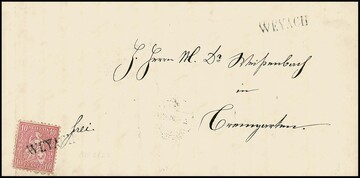 WEYACH
J. Herrn M. Dr Weißenbach
in
Bremgarten.
frei.
WEYACH